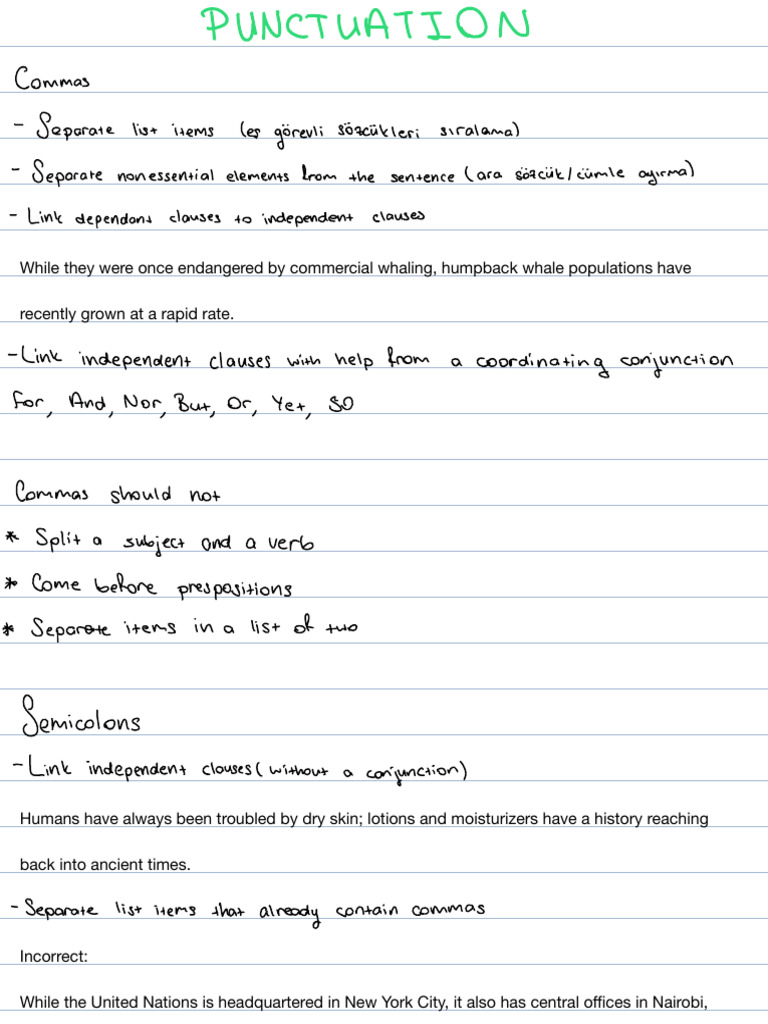 PUNCTUATION
Commas
- Separate list items (eş görevli sözcükleri sıralama)
- Separate nonessential elements from the sentence (ara sözcük/cümle ayırma)
- Link dependant clauses to independent clauses
While they were once endangered by commercial whaling, humpback whale populations have
recently grown at a rapid rate.
- Link independent clauses with help from a coordinating conjunction
For, And, Nor, But, Or, Yet, SO
Commas should not
* Split a subject and a verb
* Come before prespositions
* Separate items in a list of two
Semicolons
- Link independent clauses (without a conjunction)
Humans have always been troubled by dry skin; lotions and moisturizers have a history reaching
back into ancient times.
- Separate list items that already contain commas
Incorrect:
While the United Nations is headquartered in New York City, it also has central offices in Nairobi,